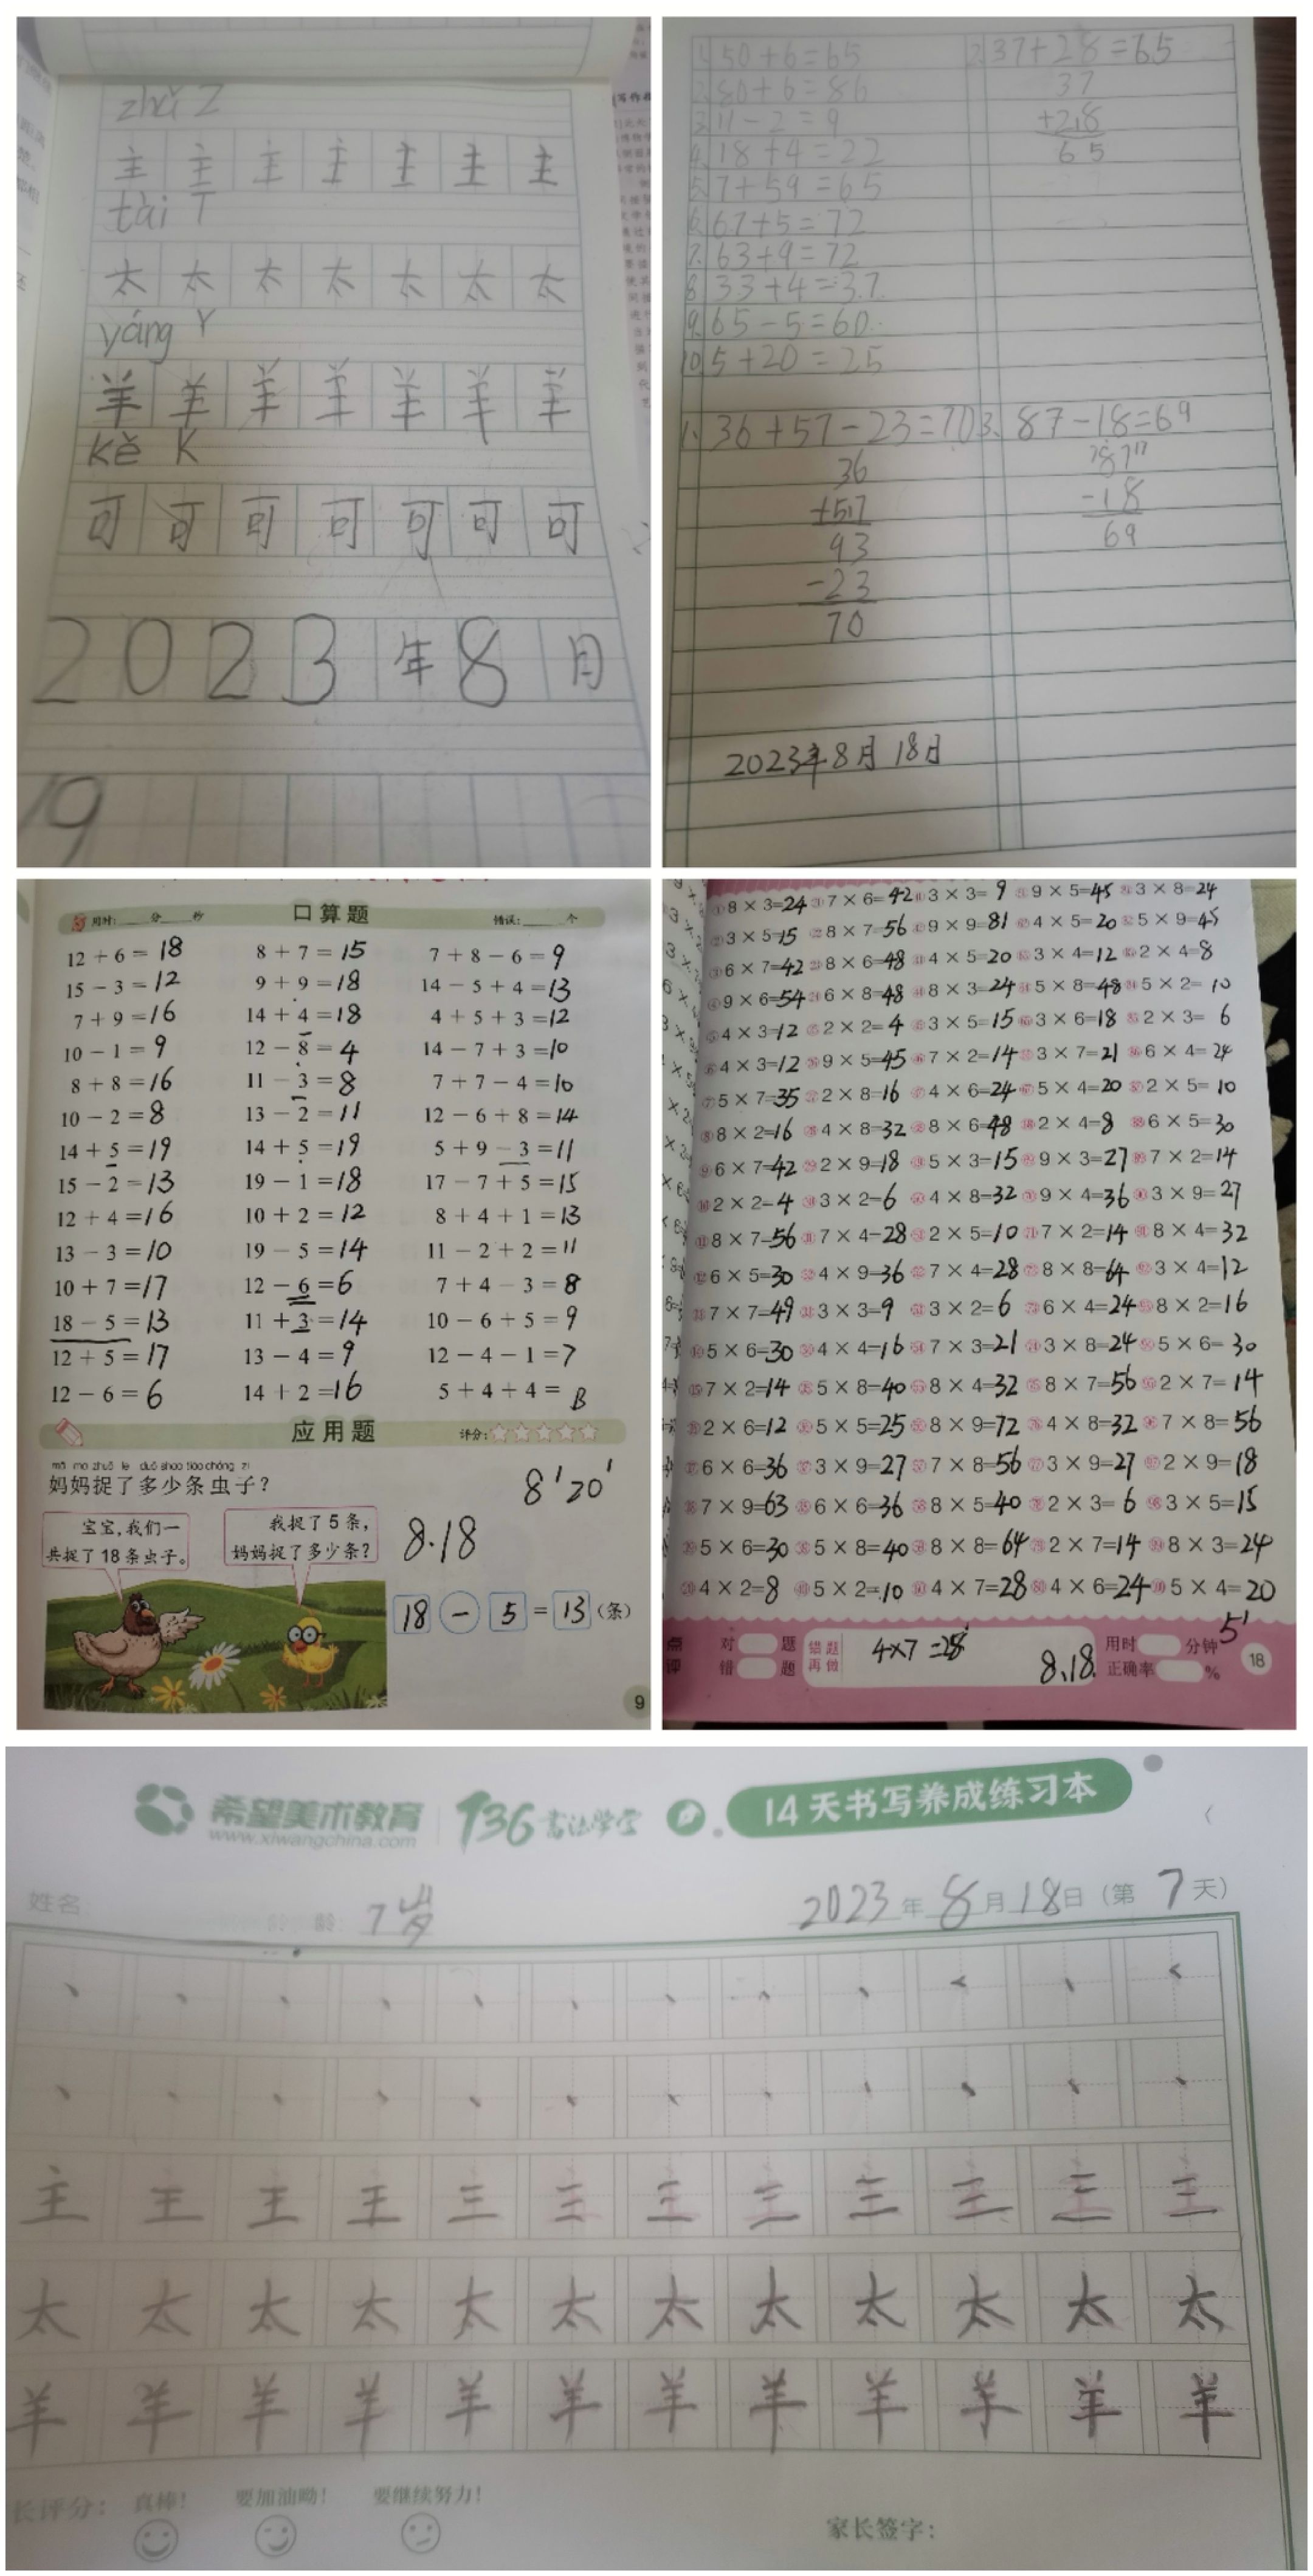 zhǔ Z
主 主 主 主 主 主 主
tài T
太 太 太 太 太 太 太
yáng Y
羊 羊 羊 羊 羊 羊 羊
kě K
可 可 可 可 可 可 可
2023年8月
19
1. 50+6=65
2. 80+6=86
3. 11-2=9
4. 18+4=22
5. 7+59=65
6. 67+5=72
7. 63+9=72
8. 33+4=37
9. 65-5=60
10. 5+20=25
2. 37+28=65
37
+28
65
1. 36+57-23=70
36
+57
93
-23
70
3. 87-18=69
87
-18
69
2023年8月18日
用时:____分____秒 口算题 错误:____个
12+6=18 8+7=15 7+8-6=9
15-3=12 9+9=18 14-5+4=13
7+9=16 14+4=18 4+5+3=12
10-1=9 12-8=4 14-7+3=10
8+8=16 11-3=8 7+7-4=10
10-2=8 13-2=11 12-6+8=14
14+5=19 14+5=19 5+9-3=11
15-2=13 19-1=18 17-7+5=15
12+4=16 10+2=12 8+4+1=13
13-3=10 19-5=14 11-2+2=11
10+7=17 12-6=6 7+4-3=8
18-5=13 11+3=14 10-6+5=9
12+5=17 13-4=9 12-4-1=7
12-6=6 14+2=16 5+4+4=13
应用题 评分:
mā ma zhuō le duō shao tiáo chóng zi
妈妈捉了多少条虫子?
8'20'
宝宝,我们一
共捉了18条虫子。
我捉了5条,
妈妈捉了多少条?
8.18
18-5=13(条)
9
8×3=24 7×6=42 3×3=9 9×5=45 3×8=24
3×5=15 8×7=56 9×9=81 4×5=20 5×9=45
6×7=42 8×6=48 4×5=20 3×4=12 2×4=8
9×6=54 6×8=48 8×3=24 5×8=48 5×2=10
4×3=12 2×2=4 3×5=15 3×6=18 2×3=6
4×3=12 9×5=45 7×2=14 3×7=21 6×4=24
5×7=35 2×8=16 4×6=24 5×4=20 2×5=10
8×2=16 4×8=32 8×6=48 2×4=8 6×5=30
6×7=42 2×9=18 5×3=15 9×3=27 7×2=14
2×2=4 3×2=6 4×8=32 9×4=36 3×9=27
8×7=56 7×4=28 2×5=10 7×2=14 8×4=32
6×5=30 4×9=36 7×4=28 8×8=64 3×4=12
7×7=49 3×3=9 3×2=6 6×4=24 8×2=16
5×6=30 4×4=16 7×3=21 3×8=24 5×6=30
7×2=14 5×8=40 8×4=32 8×7=56 2×7=14
2×6=12 5×5=25 8×9=72 4×8=32 7×8=56
6×6=36 3×9=27 7×8=56 3×9=27 2×9=18
7×9=63 6×6=36 8×5=40 2×3=6 3×5=15
5×6=30 5×8=40 8×8=64 2×7=14 8×3=24
4×2=8 5×2=10 4×7=28 4×6=24 5×4=20
点评 对 题 错 题 错题再做 4×7=28 8.18 用时 分钟 5' 正确率 % 18
希望美术教育 136书法学堂 14天书写养成练习本
www.xiwangchina.com
姓名 7岁 2023年8月18日(第7天)
主 主 主 主 三 三 三 三 三 三 三 三
太 太 太 太 太 太 太 太 太 太 太 太
羊 羊 羊 羊 羊 羊 羊 羊 羊 羊 羊 羊
长评分: 真棒! 要加油呦! 要继续努力!
家长签字: